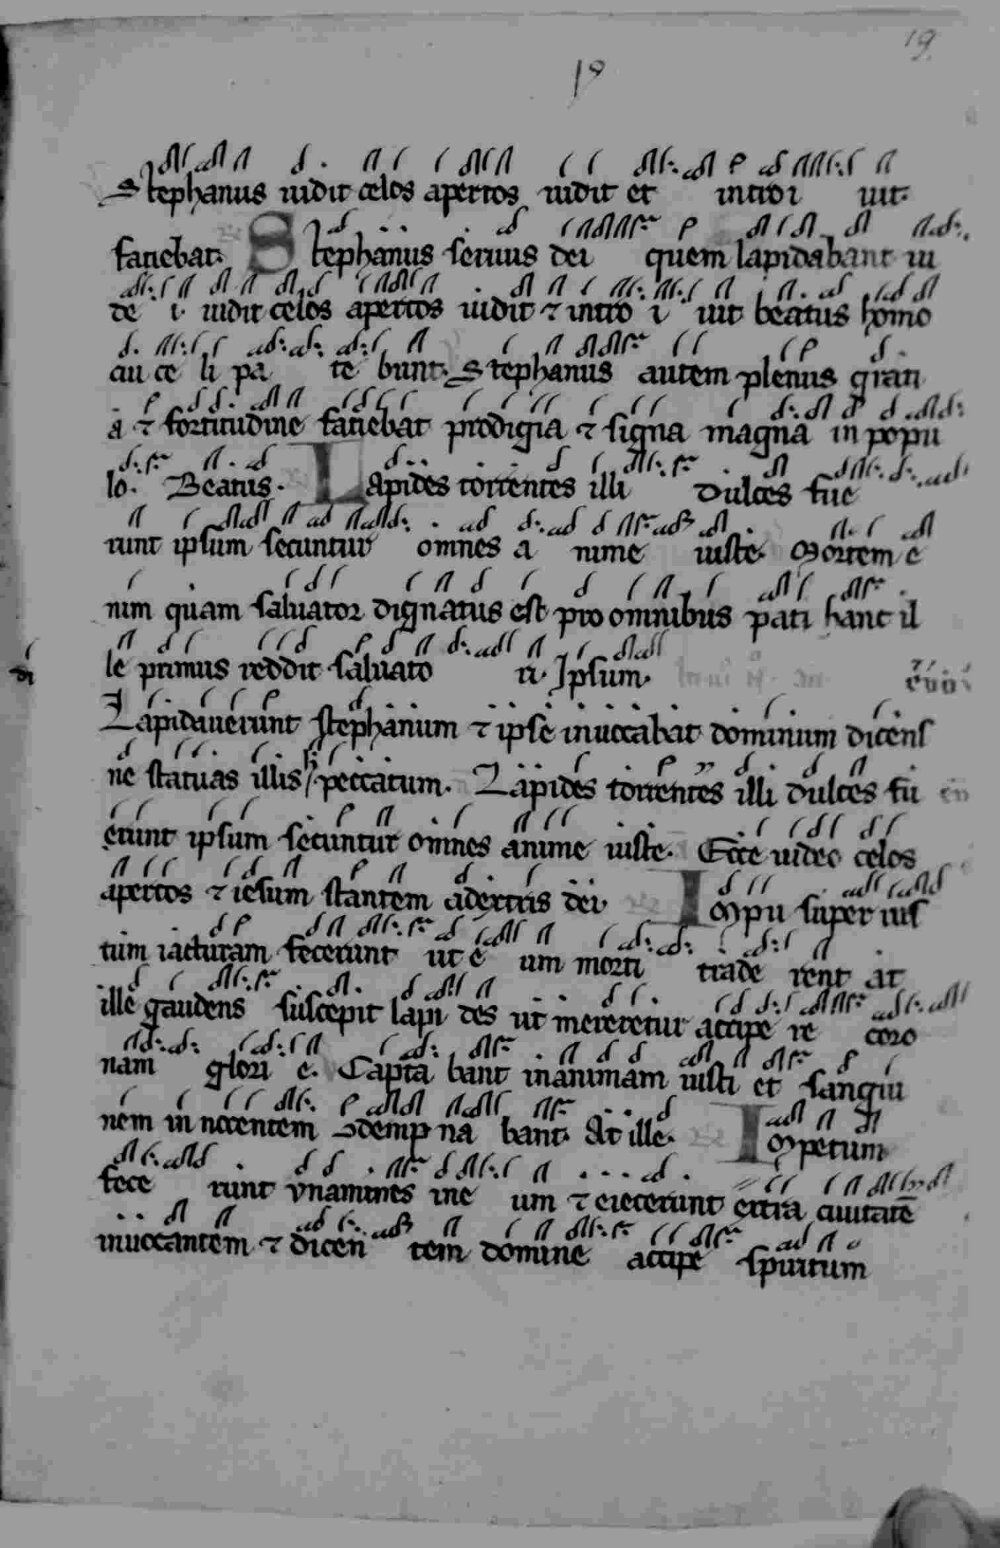 19
19
Stephanus uidit celos apertos uidit et introi uit.
faciebat. Stephanus seruus dei quem lapidabant iu
de i. uidit celos apertos uidit ⁊ intro i uit beatus homo
cui ce li pa te bant. Stephanus autem plenus grati
a ⁊ fortitudine faciebat prodigia ⁊ signa magna in popu
lo. Beatus. Lapides torrentes illi dulces fue
runt ipsum secuntur omnes a nime iuste. Mortem e
nim quam saluator dignatus est pro omnibus pati hanc il
le primus reddit saluato ri. Ipsum.
Lapidauerunt stephanum ⁊ ipse inuocabat dominum dicens
ne statuas illis h peccatum. Lapides torrentes illi dulces fu
erunt ipsum secuntur omnes anime iuste. Ecce uideo celos
apertos ⁊ iesum stantem adextris dei. Impii super ius
tum iacturam fecerunt ut e um morti trade rent at
ille gaudens suscepit lapi des ut mereretur accipe re coro
nam glori e. Capta bant in animam iusti et sangui
nem in nocentem 9demp na bant. At ille. Impetum
fece runt vnanimes ine um ⁊ eiecerunt extra ciuitatē
inuocantem ⁊ dicen tem domine accipe spiritum